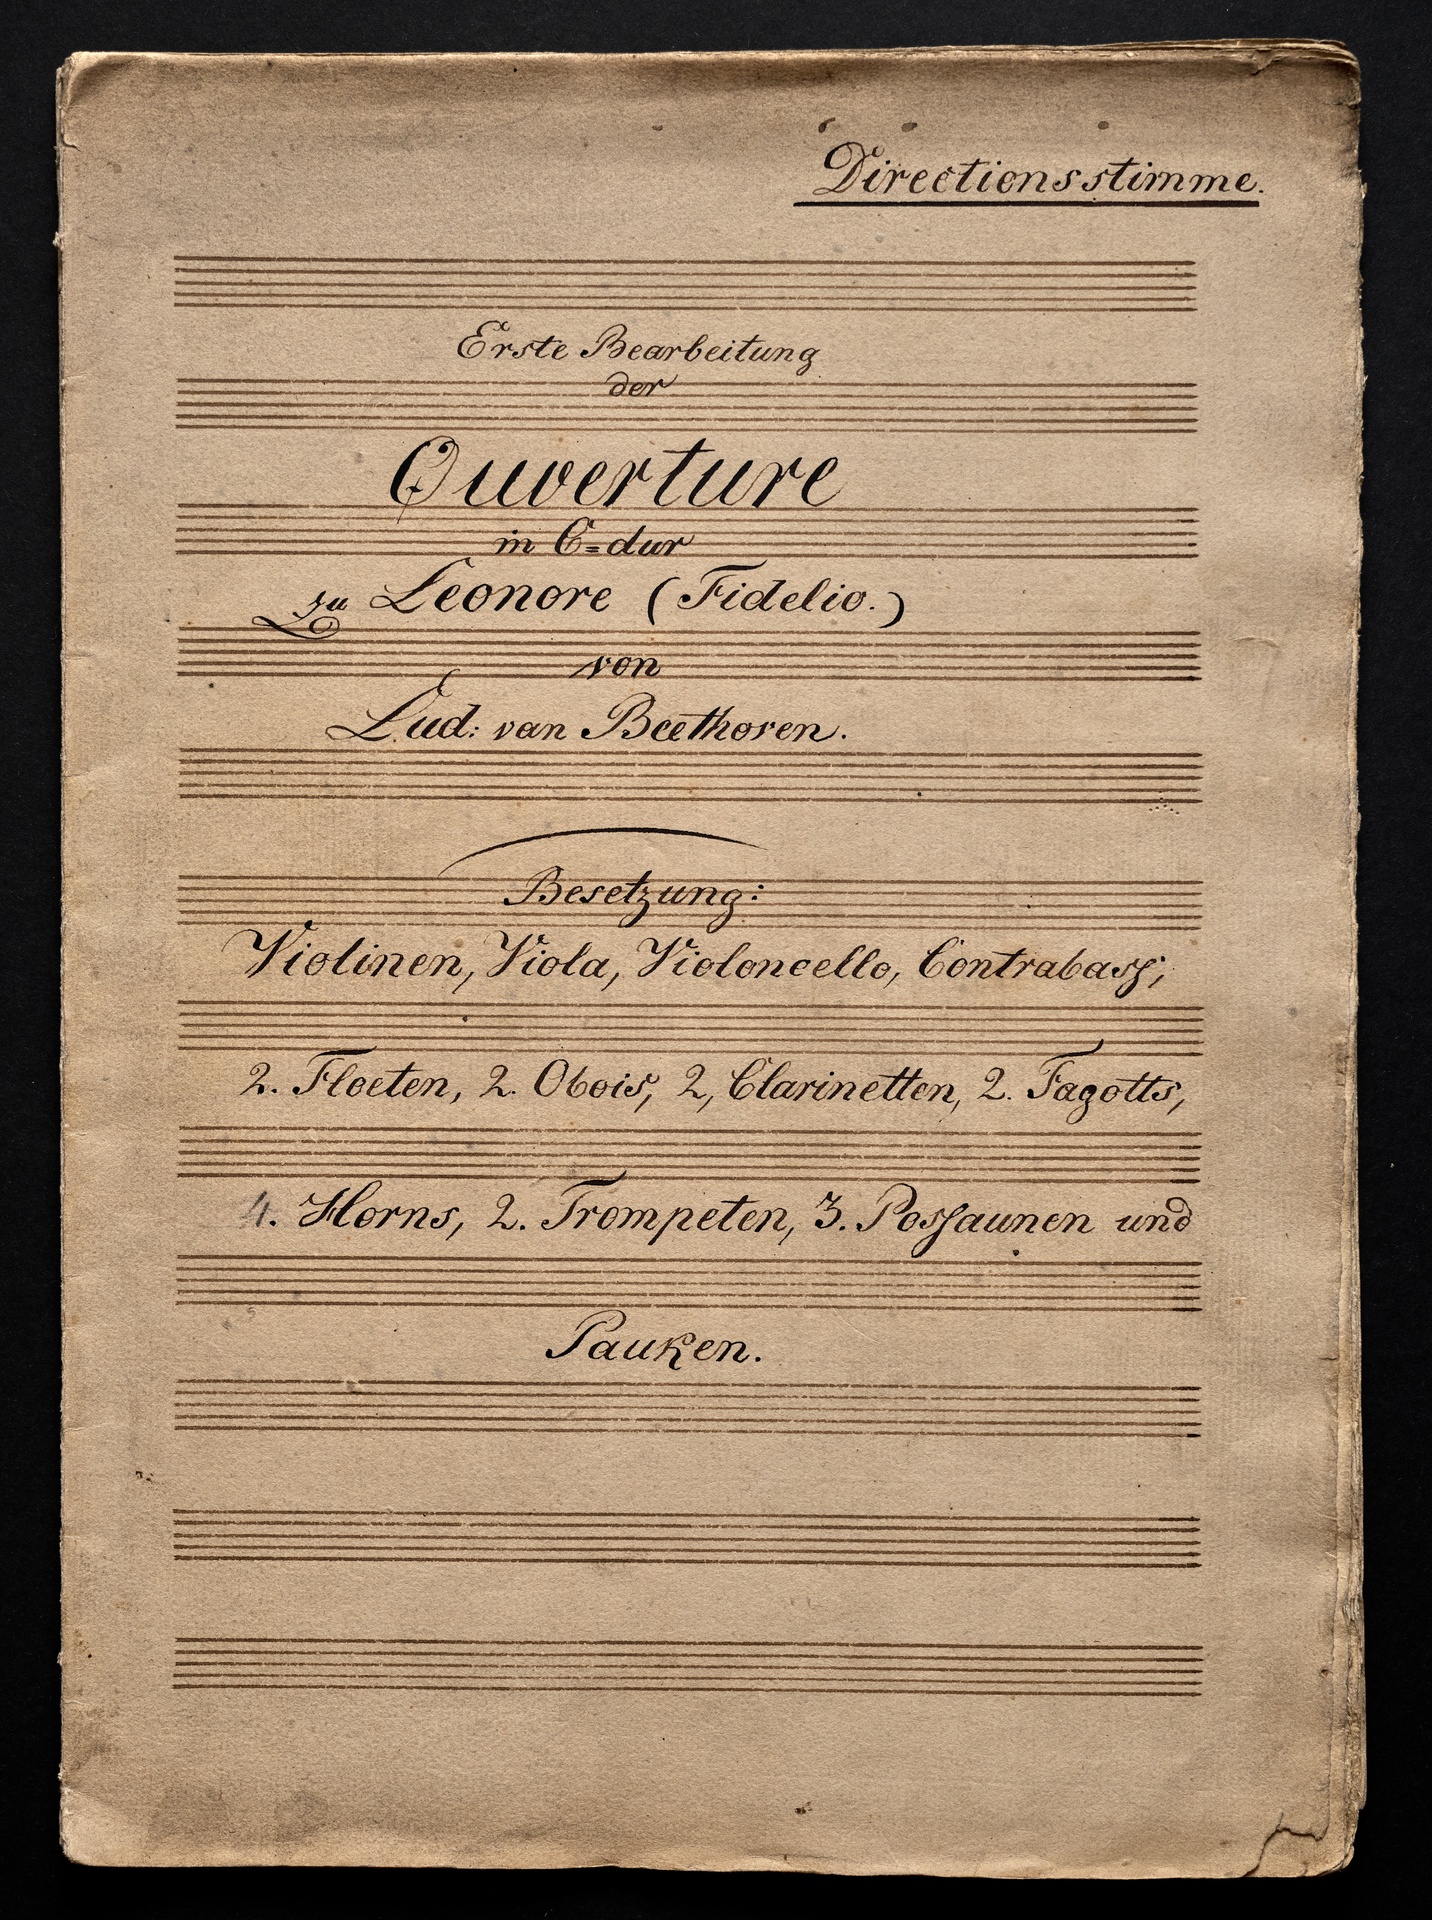 Directionsstimme.
Erste Bearbeitung
der
Ouverture
in C=dur
zu Leonore (Fidelio.)
von
Lud: van Beethoven.
Besetzung:
Violinen, Viola, Violoncello, Contrabass;
2. Floeten, 2. Obois, 2, Clarinetten, 2. Fagotts,
4. Horns, 2. Trompeten, 3. Posſaunen und
Pauken.